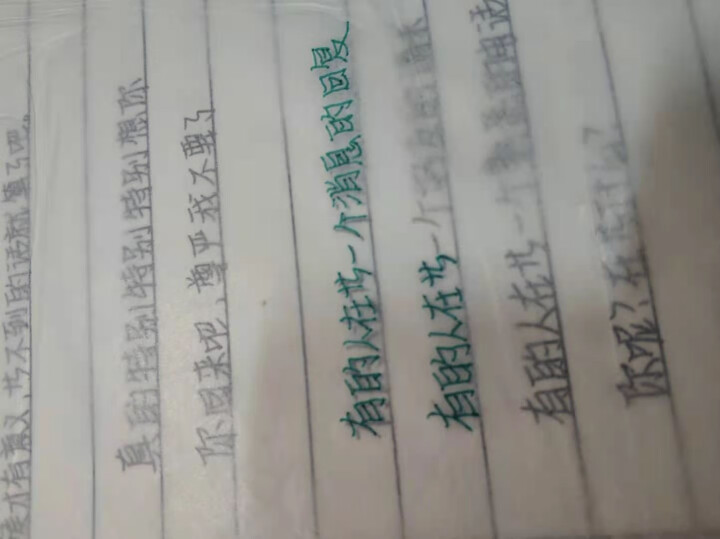 才有意义,等不到的话就算了吧。
真的特别特别特别想你
你回来吧,尊严我不要了
有的人在等一个消息的回复
有的人在等一个
有的人在等一个
你呢?在等什么?